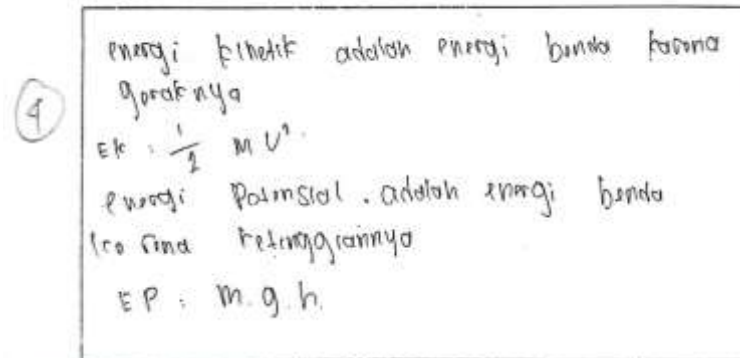 4
energi kinetik adalah energi benda karena
geraknya
Ek : 1/2 m v².
energi Potensial . adalah energi benda
karena ketinggiannya
EP : m.g.h.